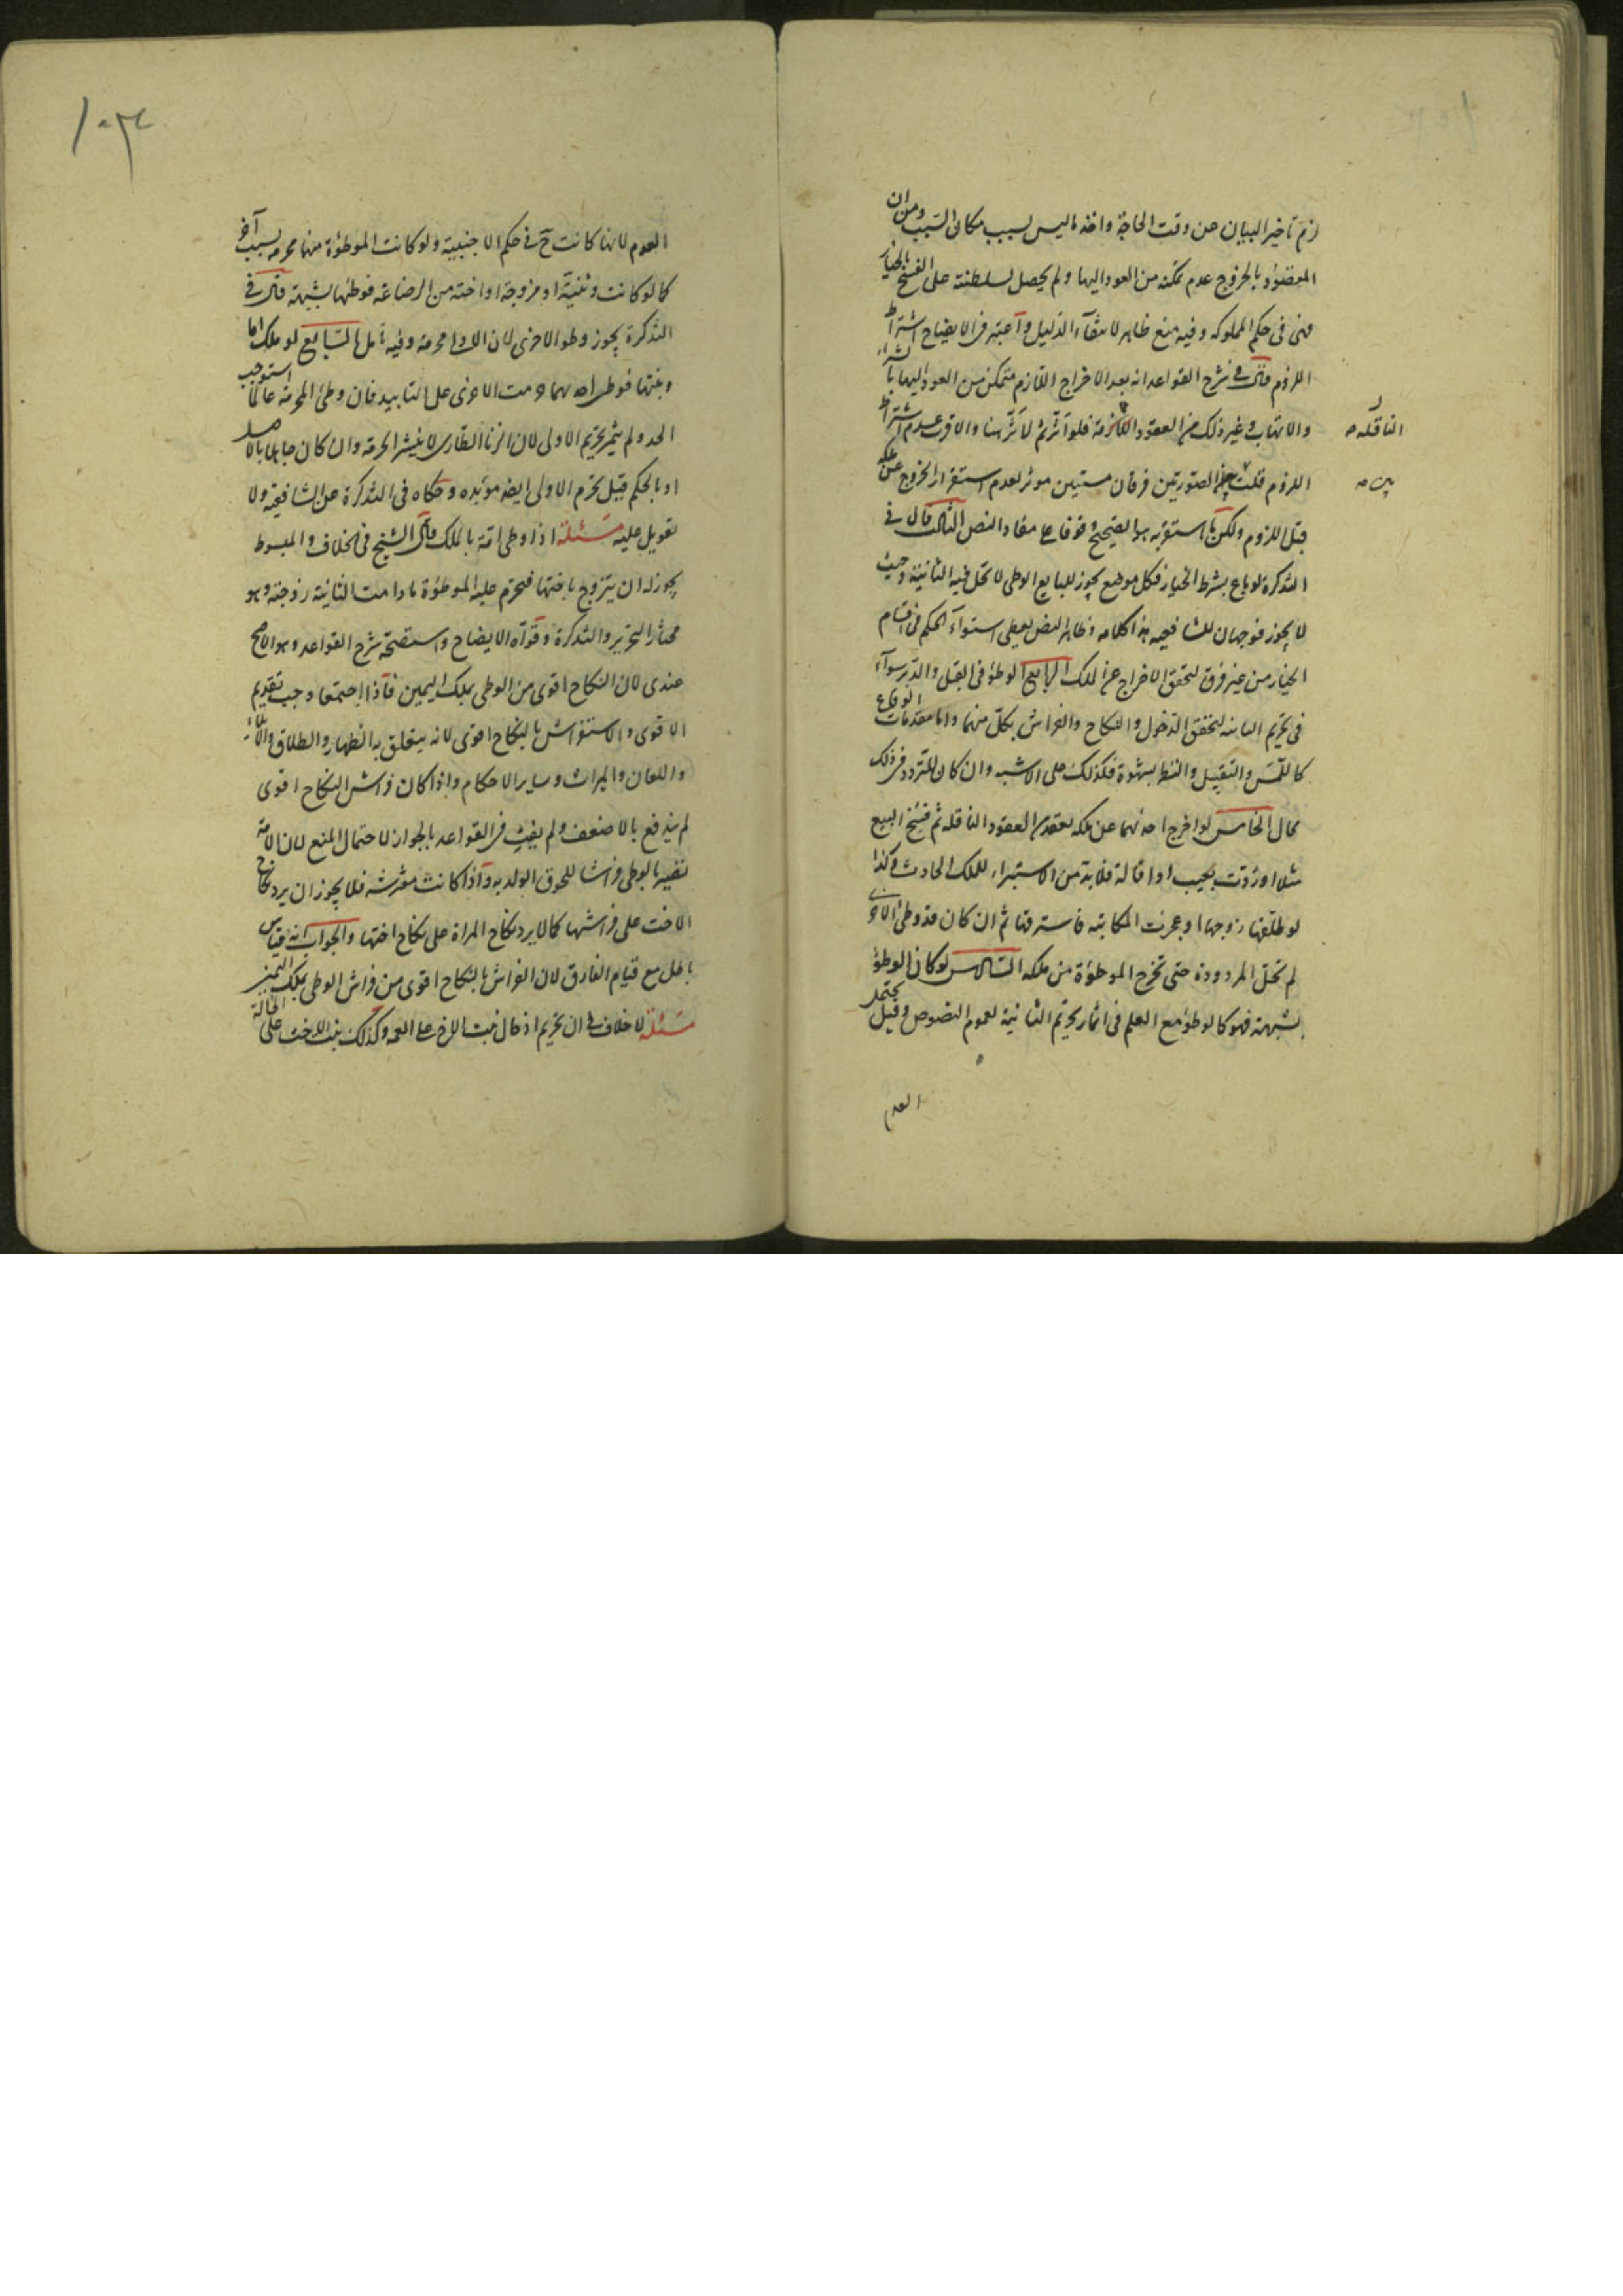 لزم تاخير البيان عن وقت الحاجة واخذ ما ليس بسبب مكان السبب ومن ان
المقصود بالخروج عدم تمكنه من العود اليها ولم يحصل لسلطنته على الفسخ بالخيار
فهى فى حكم المملوكه وفيه منع ظاهر لانتفاء الدليل واعتبر فى الايضاح اشتراط
اللزوم قال فى شرح القواعد انه بعد الاخراج اللازم متمكن من العود اليها بالشراء
والاتهاب وغير ذلك من العقود اللازمة فلو اثر ثم لاثر هنا والاقرب عدم اشتراط
الناقله صح
اللزوم قلت الصورتين فرقان مستبين موثر لعدم استقرار الخروج عن ملكه
بين صح
قبل اللزوم ولكن ما استقربه هو الصحيح وقوفا على مفاد النص الثالث قال فى
التذكرة لو باع بشرط الخيار فكل موضع يجوز للبايع الوطى لا تحل فيه الثانية وحيث
لا يجوز فوجهان للشافعيه هذا كلامه وظاهر النص يعطى استواء الحكم فى اقسام
الخيار من غير فرق لتحقق الاخراج عن الملك الرابع الوطؤ فى القبل والدبر سواء
فى تحريم الثانيه لتحقق الدخول والنكاح والفراش بكل منهما واما مقدمات الوقاع
كاللمس والتقبيل والنظر بشهوة فكذلك على الاشبه وان كان للتردد فى ذلك
مجال الخامس لو اخرج احدٰهما عن ملكه بعقد من العقود الناقله ثم فسخ البيع
مثلا او ردت بعيب او اقالة فلا بد من الاستبراء للملك الحادث وكذا
لو طلقها زوجها او عجزت المكاتبه فاسترقها ثم ان كان قد وطئ الاخرى
لم تحل المردودة حتى تخرج الموطؤة من ملكه السادس لو كان الوطؤ
بشبهة فهو كالوطؤ مع العلم فى اثمار تحريم الثانية لعموم النصوص وقيل يحتمل
العدم
العدم لانها كانت ح فى حكم الاجنبية ولو كانت الموطؤة منهما محرمه بسبب آخر
كما لو كانت وثنية او مزوجة او اخته من الرضاعه فوطئها بشبهة قال فى
التذكرة يجوز وطؤ الاخرى لان الاولى محرمة وفيه تامل السابع لو ملك اما
وبنتها فوطى احدٰهما حرمت الاخرى على التابيد فان وطئ المحرمة عالما استوجب
الحد ولم يثمر تحريم الاولى لان الزنا الطارى لا ينشر الحرمة وان كان جاهلا بالاصل
او بالحكم قيل تحرم الاولى ايضا موبده وحكاه فى التذكرة عن الشافعية ولا
تعويل عليه مسئلة اذا وطى امة بالملك قال الشيخ فى الخلاف والمبسوط
يجوز له ان يتزوج باختها فتحرم عليه الموطؤة ما دامت الثانية زوجته وهو
مختار التحرير والتذكرة وقواه الايضاح واستصحه شرح القواعد وهو الاصح
عندى لان النكاح اقوى من الوطى بملك اليمين فاذا اجتمعا وجب تقديم
الاقوى والاستفراش بالنكاح اقوى لانه يتعلق به الظهار والطلاق والايلاء
واللعان والميراث وساير الاحكام واذا كان فراش النكاح اقوى
لم يندفع بالاضعف ولم يفت فى القواعد بالجواز لاحتمال المنع لان الامة
تصير بالوطى فراشا للحوق الولد به واذا كانت مفترشه فلا يجوز ان يرد نكاح
الاخت على فراشها كما لا يرد نكاح المراة على نكاح اختها والجواب انه قياس
باطل مع قيام الفارق لان الفراش بالنكاح اقوى من فراش الوطى بملك اليمين
مسئلة لا خلاف فى ان تحريم ادخال بنت الاخ على العمه وكذلك بنت الاخت على الخالة